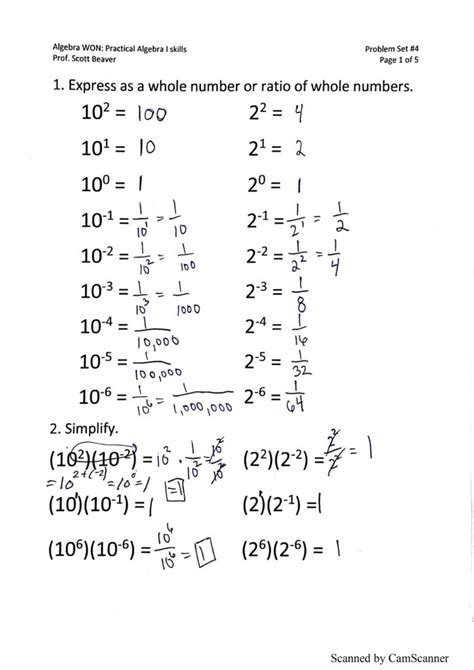 Algebra WON: Practical Algebra I skills Problem Set #4
Prof. Scott Beaver Page 1 of 5
1. Express as a whole number or ratio of whole numbers.
10² = 100 2² = 4
10¹ = 10 2¹ = 2
10⁰ = 1 2⁰ = 1
10⁻¹ = 1/10¹ = 1/10 2⁻¹ = 1/2¹ = 1/2
10⁻² = 1/10² = 1/100 2⁻² = 1/2² = 1/4
10⁻³ = 1/10³ = 1/1000 2⁻³ = 1/8
10⁻⁴ = 1/10,000 2⁻⁴ = 1/16
10⁻⁵ = 1/100,000 2⁻⁵ = 1/32
10⁻⁶ = 1/10⁶ = 1/1,000,000 2⁻⁶ = 1/64
2. Simplify.
(10²)(10⁻²) = 10² · 1/10² = 10²/10² (2²)(2⁻²) = 2²/2² = 1
= 10²⁺⁽⁻²⁾ = 10⁰ = 1 = 1
(10¹)(10⁻¹) = 1 (2¹)(2⁻¹) = 1
(10⁶)(10⁻⁶) = 10⁶/10⁶ = 1 (2⁶)(2⁻⁶) = 1
Scanned by CamScanner